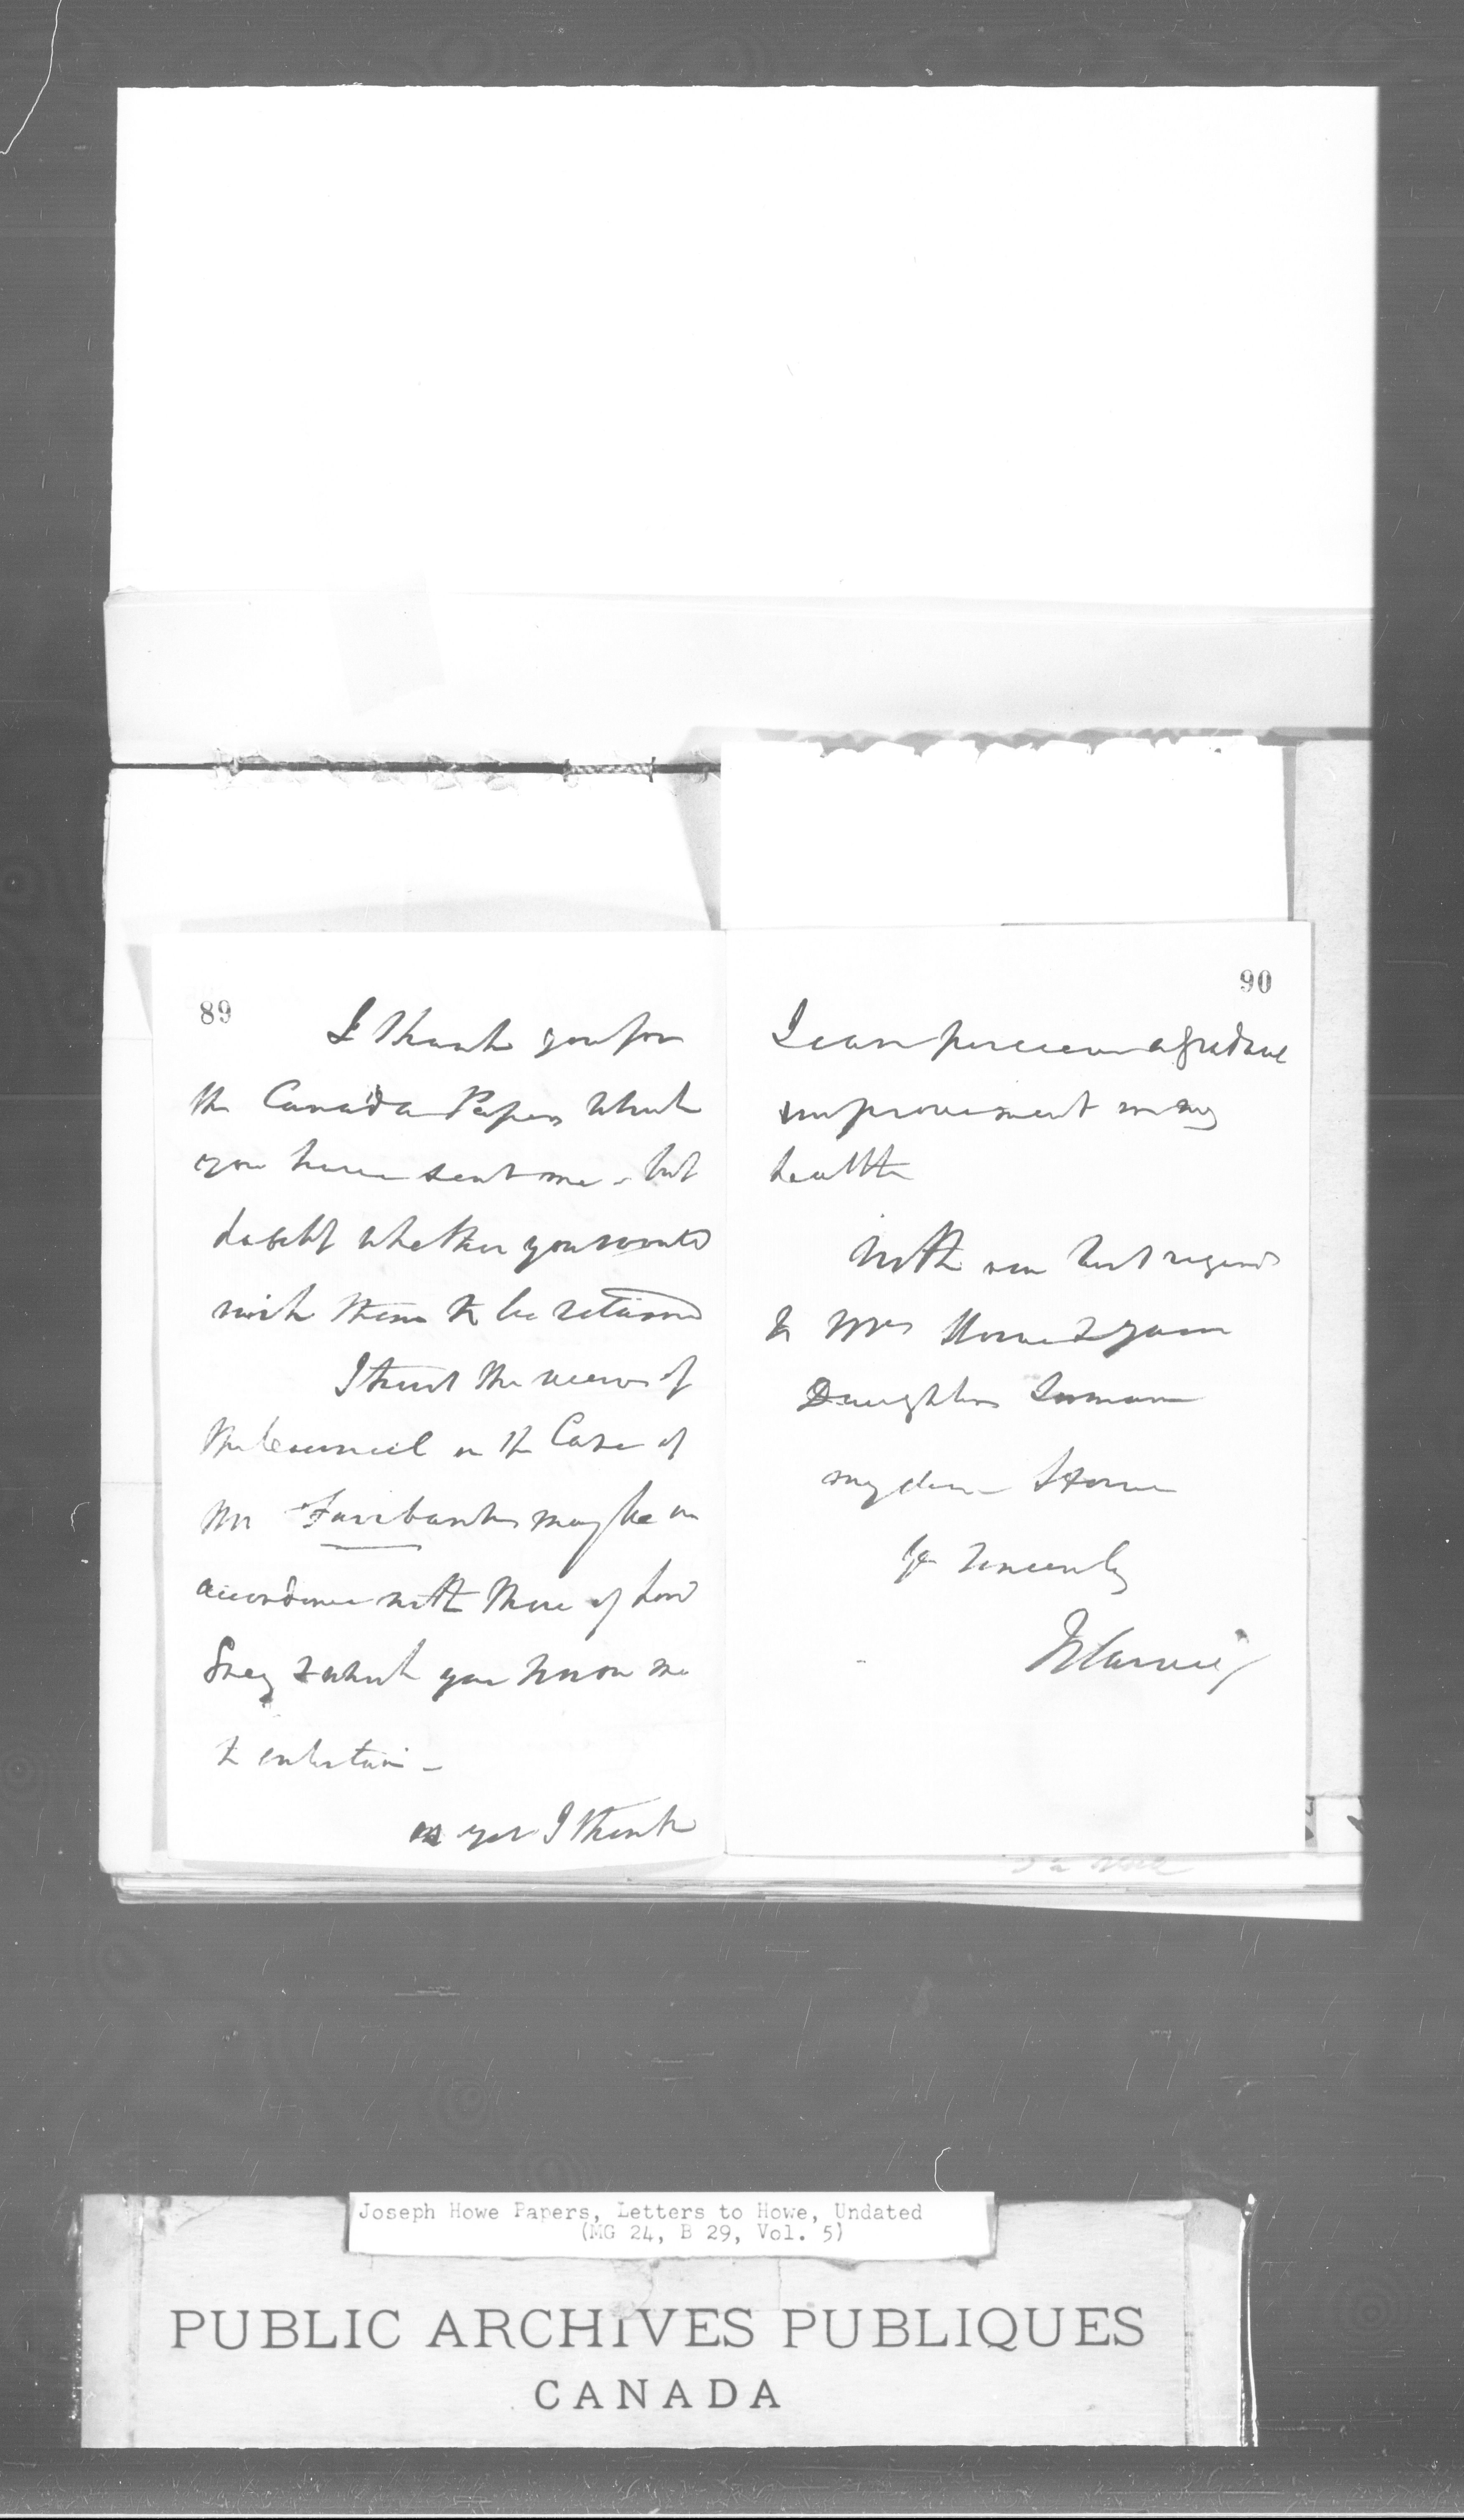 89
I thank you for
the Canada Papers which
you have sent me - but
doubt whether you would
wish them to be returned
I trust the views of
the Council in the Case of
Mr Fairbanks may be in
accordance with those of Lord
Grey & which you know me
to entertain -
as yet I think
90
I can perceive a gradual
improvement in my
health
With our best regards
to Mrs Howe & your
Daughters
my dear Howe
Yr Sincerely
J Harvey
Joseph Howe Papers, Letters to Howe, Undated
(MG 24, B 29, Vol. 5)
PUBLIC ARCHIVES PUBLIQUES
CANADA